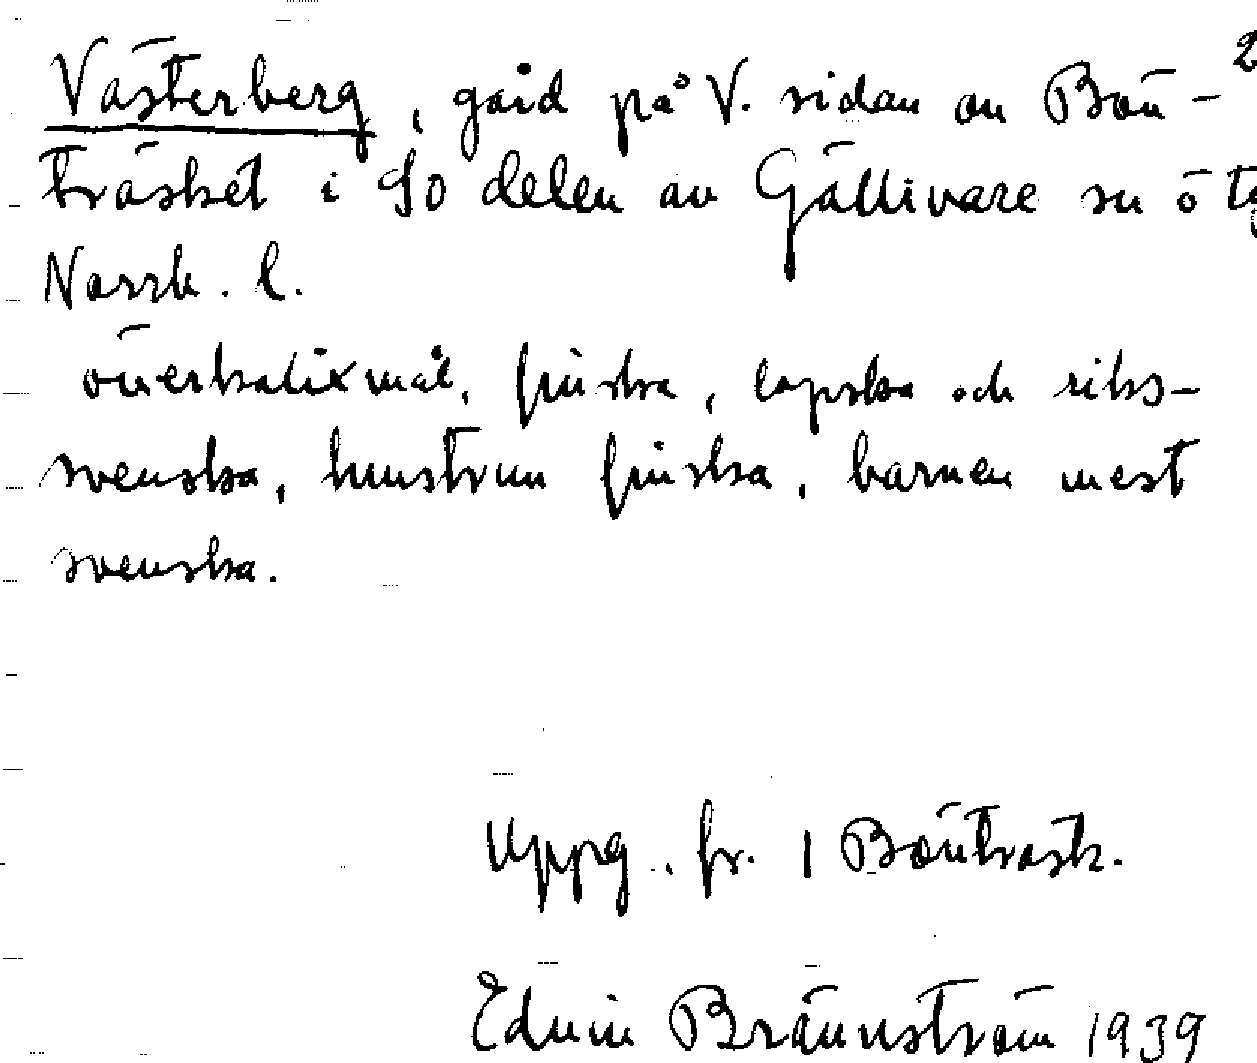 Västerberg, gård på V. sidan av Bön- 2
träsket i SO delen av Gällivare sn
Norrb. l.
överkalixmål, finska, lapska och riks-
svenska, hustrun finska, barnen mest
svenska.
Uppg. fr. 1 Böntrask.
Edvin Brännström 1939